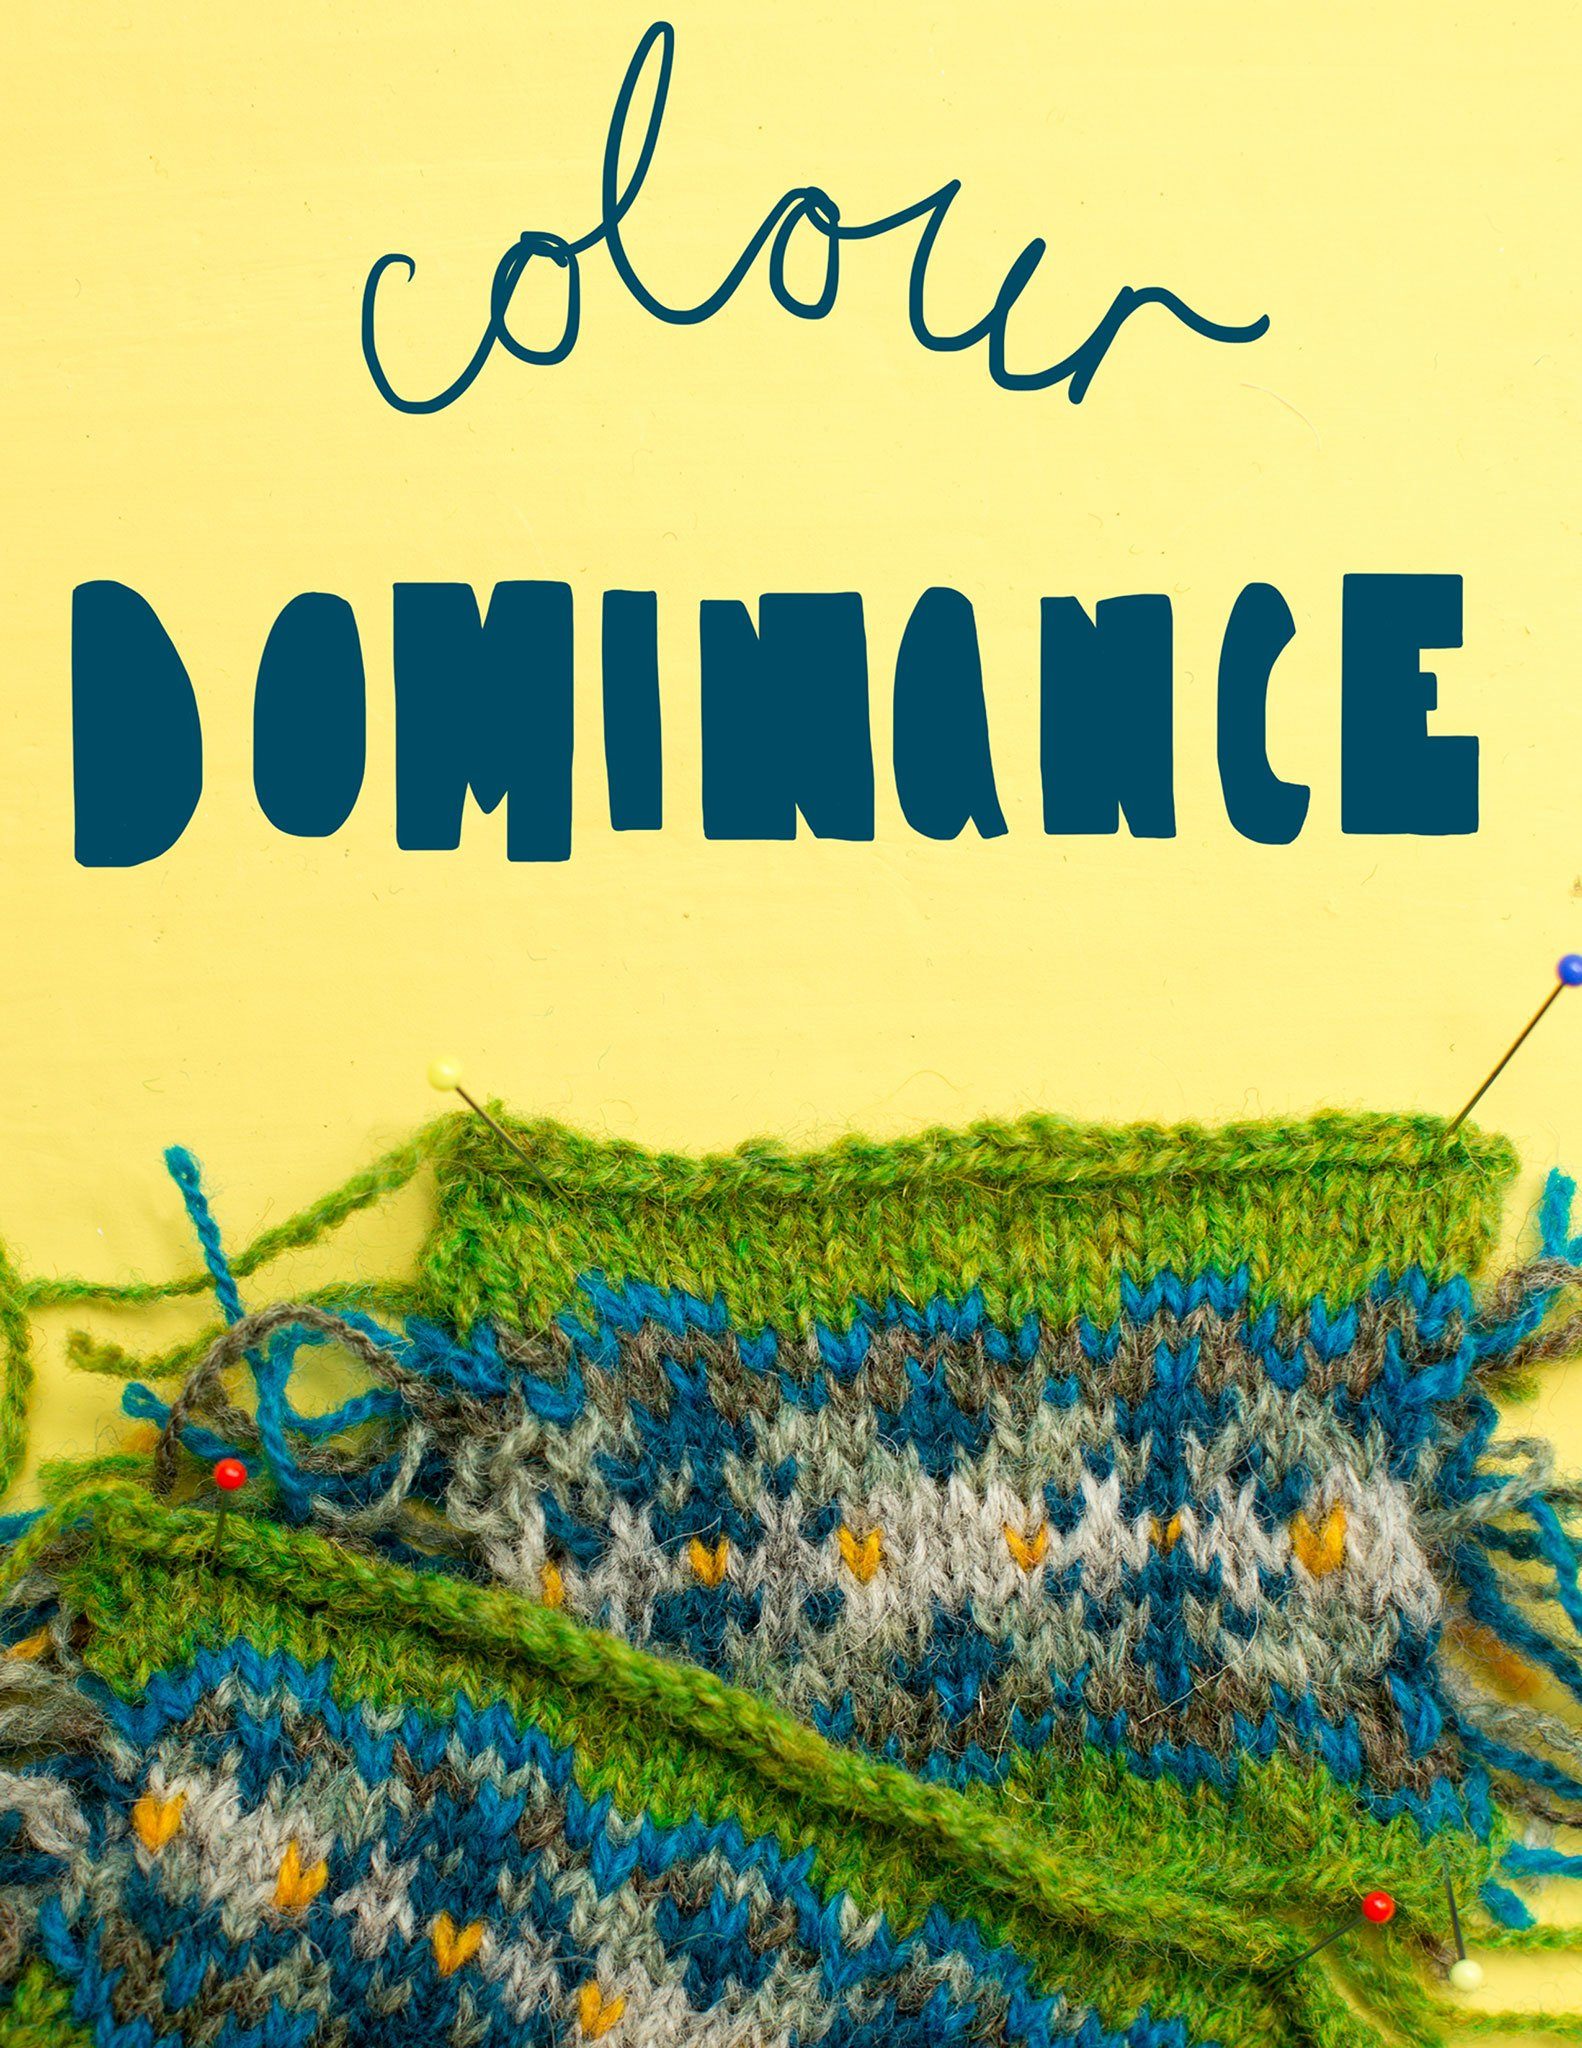 colour
DOMINANCE